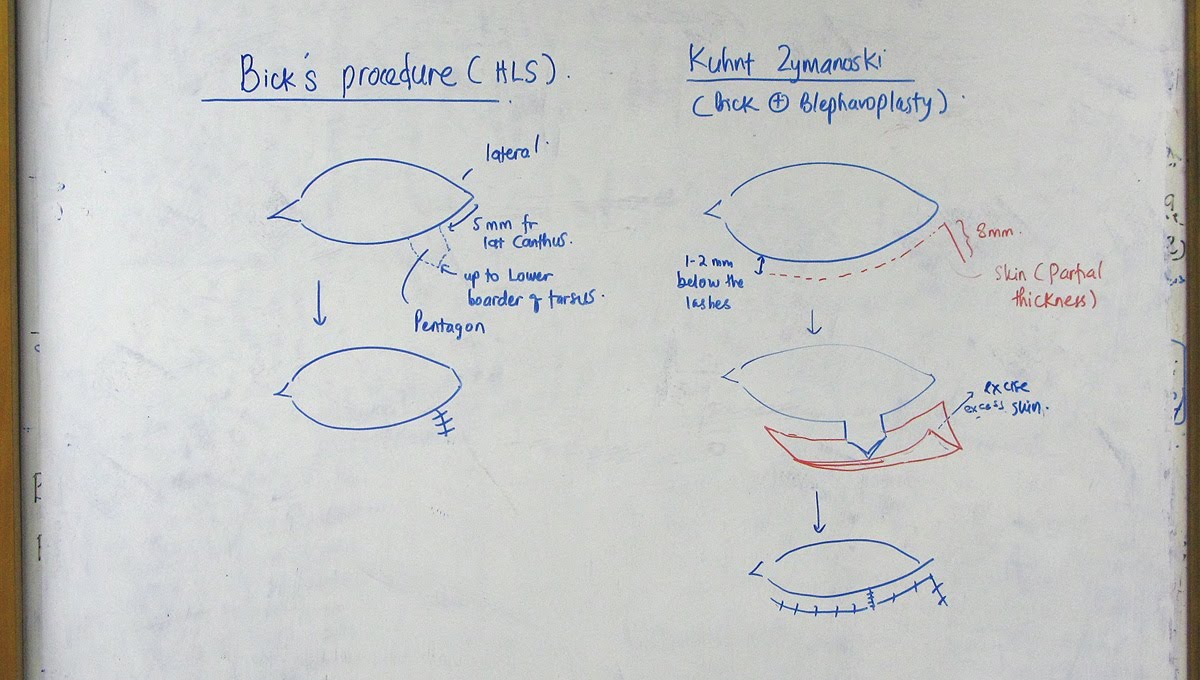 Bick's procedure (HLS).
lateral.
5mm fr
lat Canthus.
up to Lower
boarder of tarsus.
Pentagon
Kuhnt Zymanoski
(bick ⊕ Blepharoplasty).
8mm.
1-2 mm
below the
lashes
skin (Partial
thickness)
excise
excess skin.